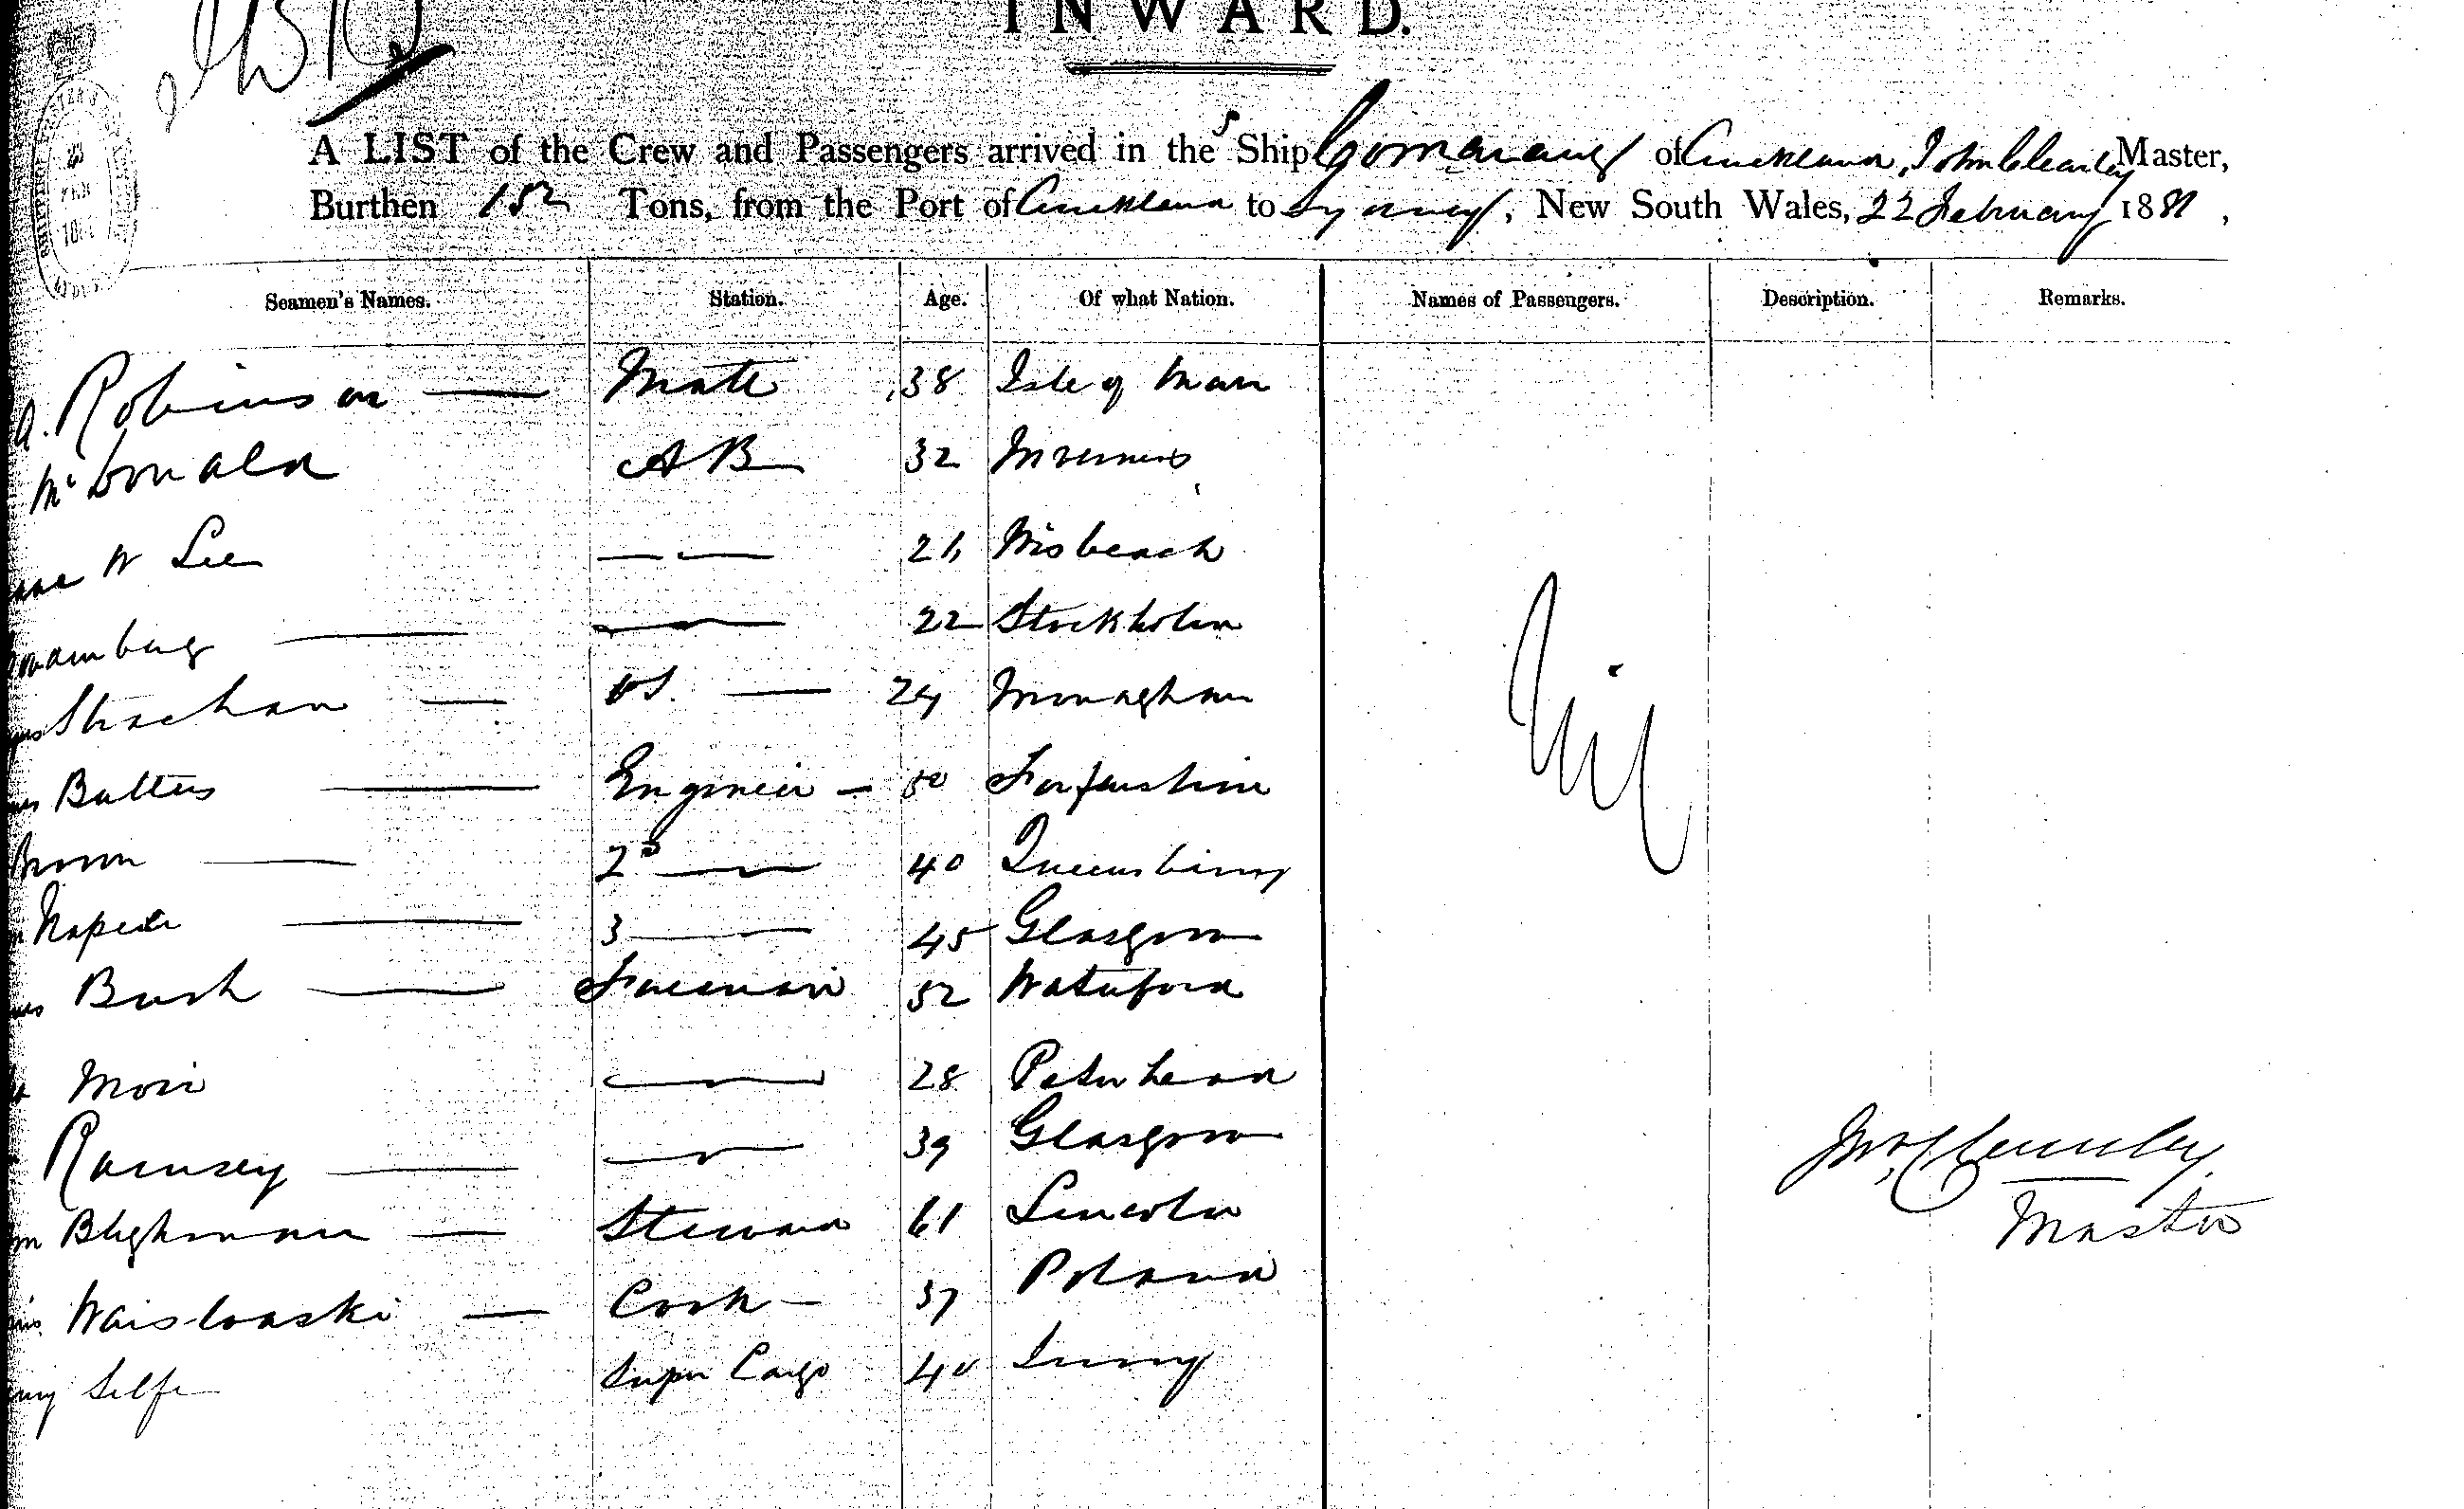 INWARD.
A LIST of the Crew and Passengers arrived in the S Ship of Auckland, John Clearley Master,
Burthen 152 Tons, from the Port of Auckland to Sydney, New South Wales, 22 February 1881,
Seamen's Names. Station. Age. Of what Nation. Names of Passengers. Description. Remarks.
A. Robinson Mate 38 Isle of Man
McDonald AB 32 Inverness
W Lee 21 Wisbeach
22 Stockholm
Strachan OS. 24 Monaghan
Butters Engineer 50 Forfarshire
Brown 2D 40 Queensberry
Napier 3 45 Glasgow
Bush Fireman 52 Waterford
Nil
Moir 28 Peterhead
Ramsey 39 Glasgow
Blighman Steward 61 Lincoln
Waislowski Cook 37 Poland
Selfe Super Cargo 40
Jno Clearley
Master